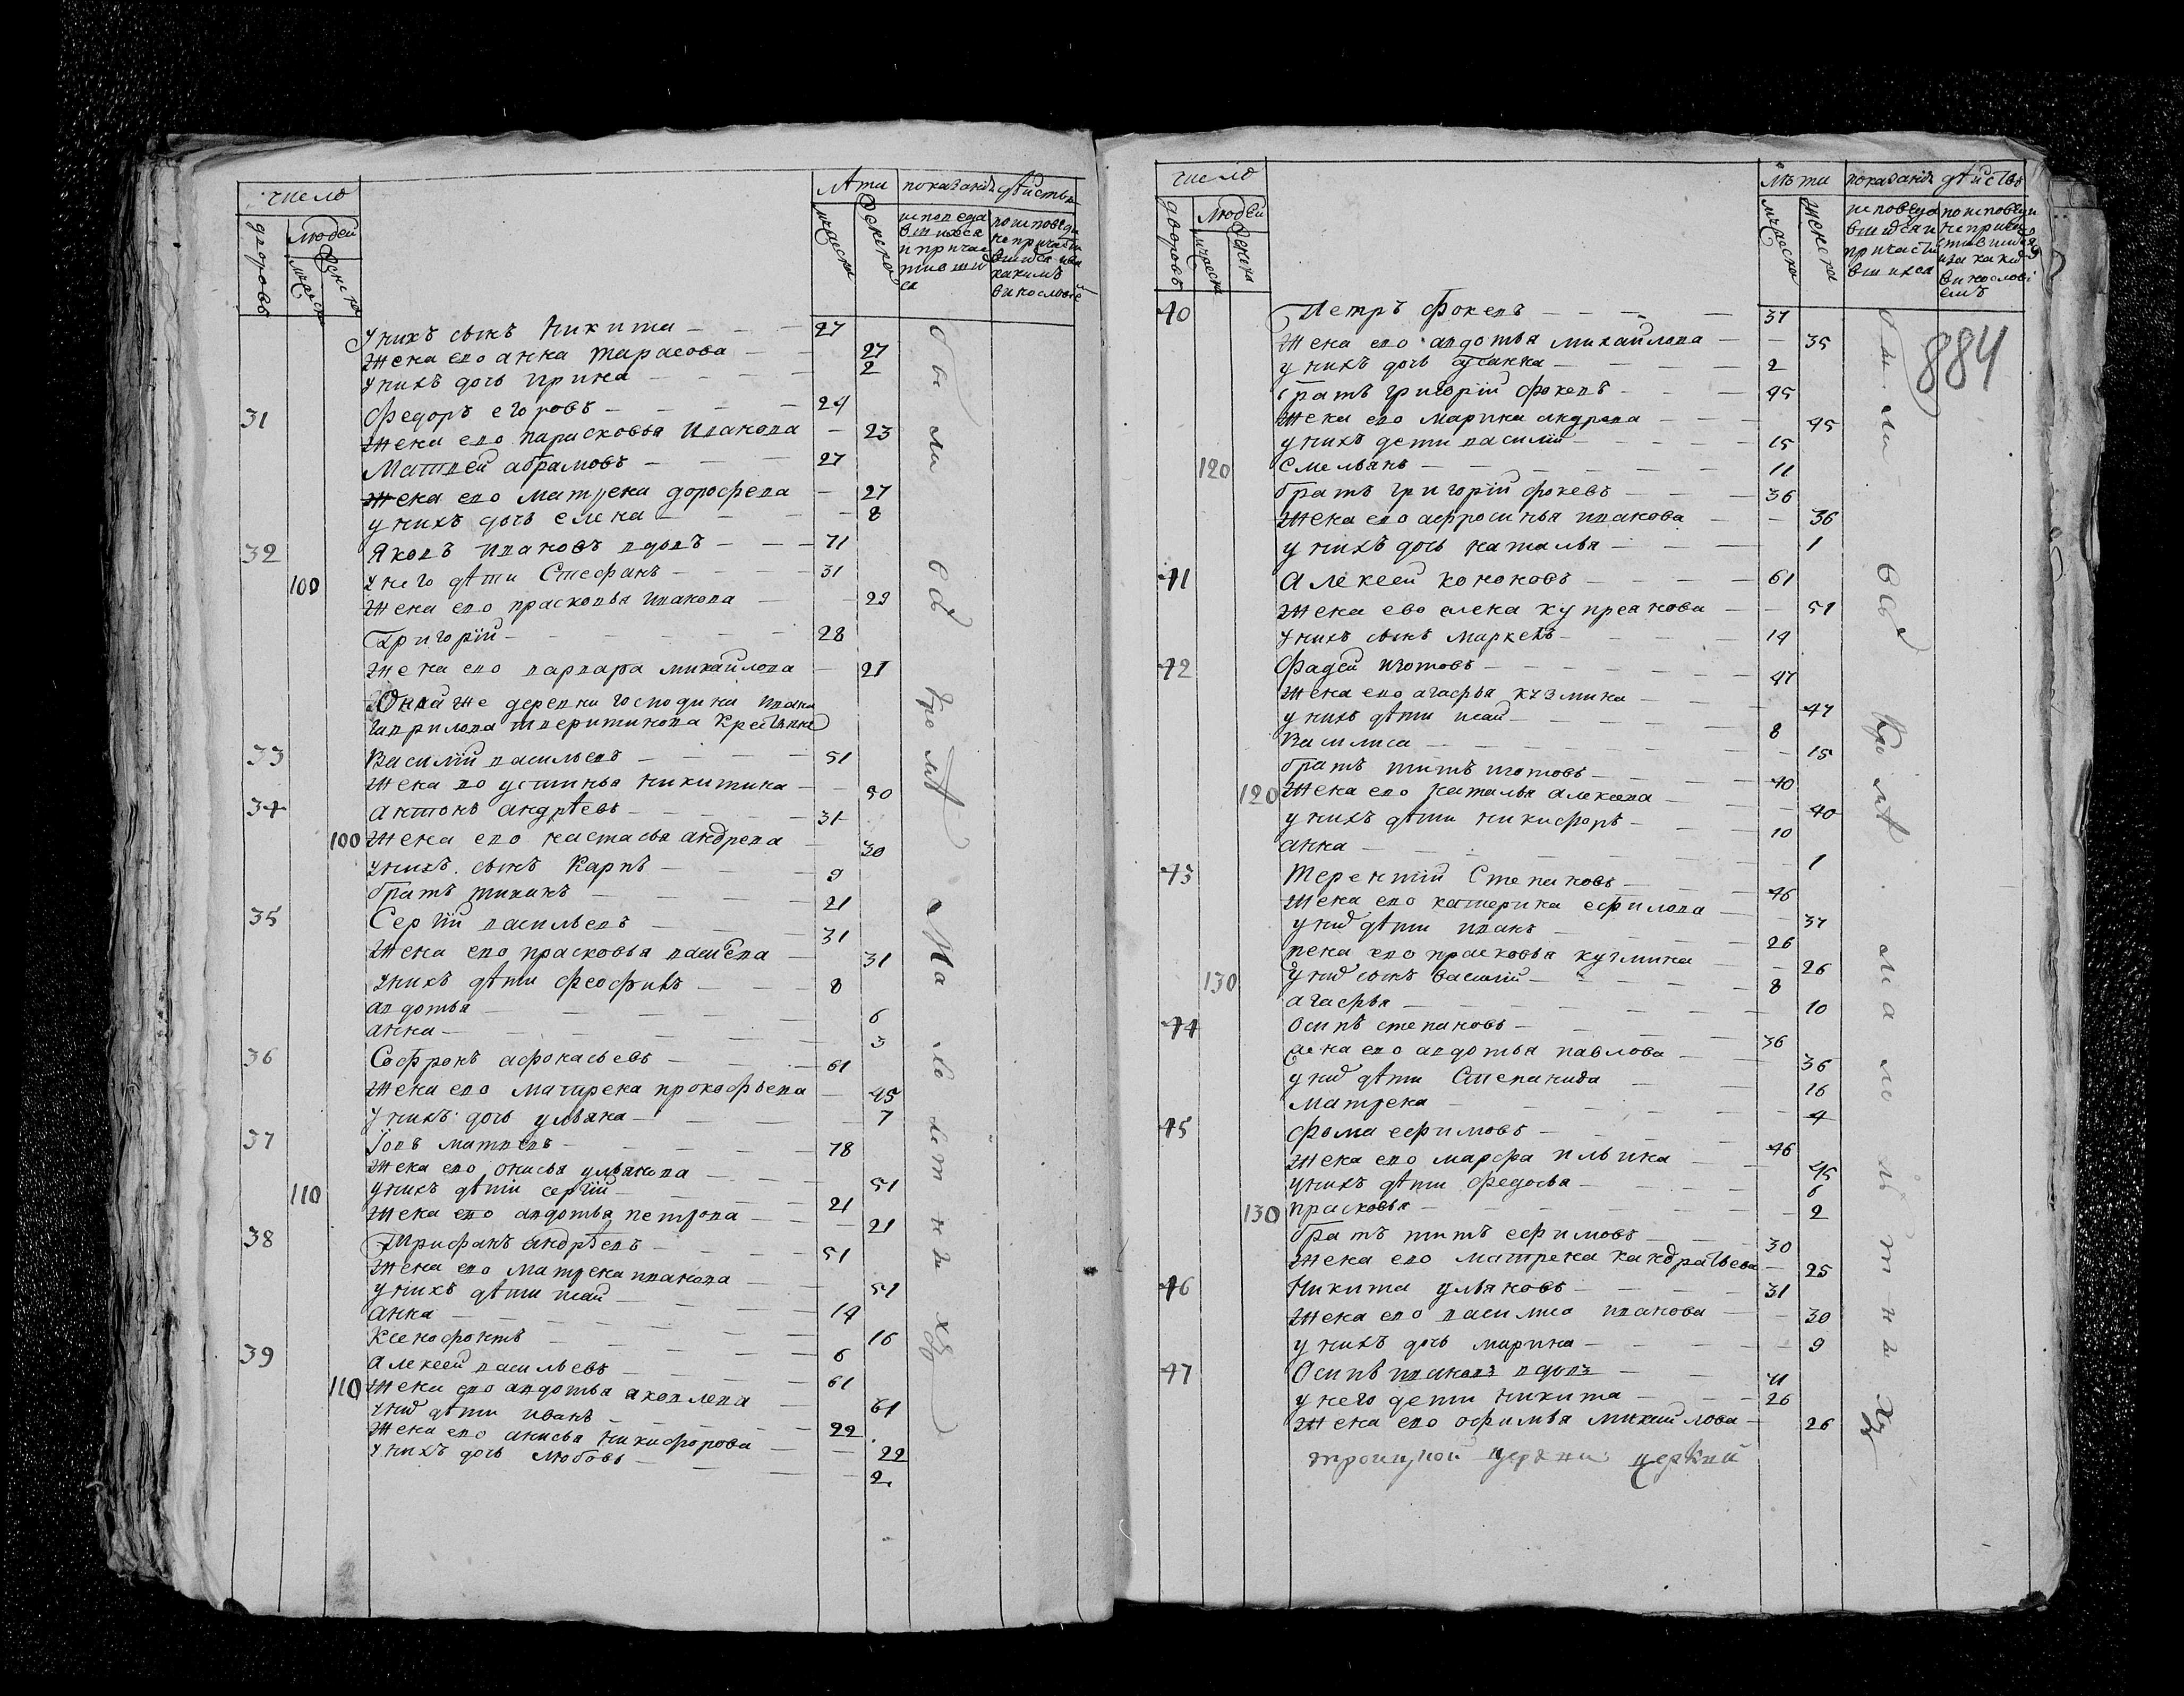 число
Лѣта показанїя дѣйства
дворовъ
людей
мужеска
женска
мужеска
женска
исповеда
вшихся
и причас
тивших
ся
по исповеди
не причасти
вшихся и за
какимъ
винословие
у нихъ сынъ никита 27
жена ево анна тарасова 27
у нихъ дочь ирина 2
31 Федоръ егоровъ 24
жена ево парасковья иванова 23
Матвей абрамовъ 27
жена ево матрена дорофеева 27
у нихъ дочь елена 8
32 Яковъ ивановъ вдовъ 71
100 у него дѣти Стефанъ 31
жена ево прасковья иванова 29
Григорїй 28
жена ево варвара михайлова 21
Оной же деревни господина ивана
гаврилова крестьяне
33 Василїй васильевъ 51
жена ево устинья никитина 50
34 антонъ андрѣевъ 31
100 жена ево настасья андреева 30
у нихъ сынъ Карпъ 9
братъ 21
35 Сергїй васильевъ 31
жена ево прасковья 31
у нихъ дѣти феофилъ 8
авдотья 6
анна 3
36 Софронъ афонасьевъ 61
жена ево матрена прокофьева 45
у нихъ дочь ульяна 7
37 Іовъ матвеевъ 78
жена ево онисья ульянова 51
110 у нихъ дѣти сергїй 21
жена ево авдотья петрова 21
38 Трифанъ андрѣевъ 51
жена ево матрена иванова 51
у нихъ дѣти исай 14
анна 16
Ксенофонтъ 6
39 алексей васильевъ 61
110 жена ево авдотья яковлева 61
у них дѣти иванъ 22
жена ево анисья никифорова 22
у нихъ дочь любовь 2
были вси кроме малолетних
число
Лѣта показанїя дѣйства
дворовъ
людей
мужеска
женска
мужеска
женска
исповеда
вшихся и
причасти
вшихся
по исповеди
не причас
тившихся
и за каким
винослові
емъ
884
40 Петръ Фокевъ 37
жена ево авдотья михайлова 35
у нихъ дочь 2
братъ григорїй фокевъ 45
жена ево марина андреева 45
у нихъ дети василїй 15
120 Емельянъ 11
братъ григорїй фокевъ 36
жена ево афросинья иванова 36
у нихъ дочь наталья 1
41 Алексей кононовъ 61
жена ево елена купреянова 51
у нихъ сынъ маркелъ 14
42 Фадей изотовъ 47
жена ево агафья кузмина 47
у нихъ дѣти исай 8
Василиса 15
братъ титъ изотовъ 40
120 жена ево наталья алексеева 40
у нихъ дѣти никифоръ 10
анна 1
43 Терентїй Степановъ 46
жена ево катерина ефилова 37
у них дѣти иванъ 26
жена ево прасковья кузмина 26
130 у них сынъ василїй 8
агафья 10
44 Осипъ степановъ 36
жена ево авдотья павлова 36
у них дѣти Степанида 16
матрена 4
45 фома ефимовъ 46
жена ево марфа ильина 45
у нихъ дѣти федосья 6
130 прасковья 2
братъ титъ ефимовъ 30
жена ево матрена кандратьева 25
46 Никита ульяновъ 31
жена ево василиса иванова 30
у нихъ дочь марина 9
47 Осипъ ивановъ вдовъ 71
у него дети никита 26
жена ево офимья михайлова 26
троицкой церкви
были вси кроме малолетних